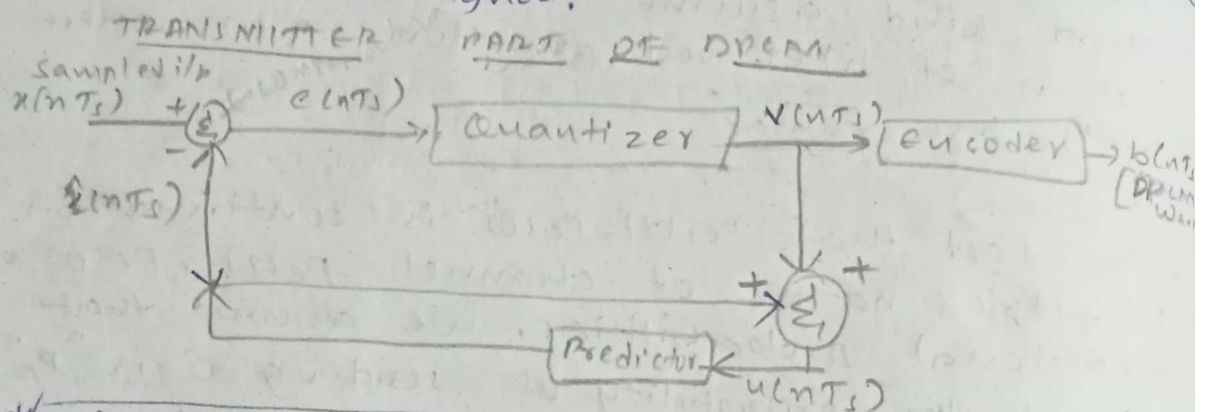 TRANSMITTER PART OF DPCM
Sampled i/p
x(nTs) + Σ e(nTs) Quantizer V(nTs) Encoder b(nTs
-
x̂(nTs)
[DPCM
+ Σ +
Predictor u(nTs)